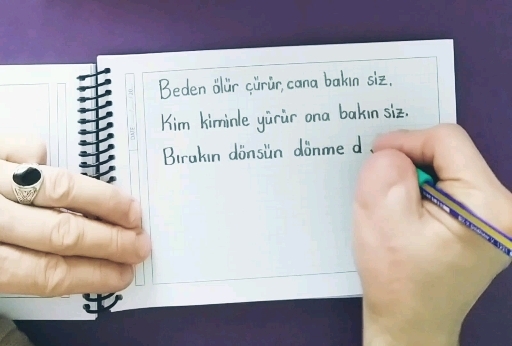 Beden ölür çürür, cana bakın siz.
Kim kiminle yürür ona bakın siz.
Bırakın dönsün dönme d